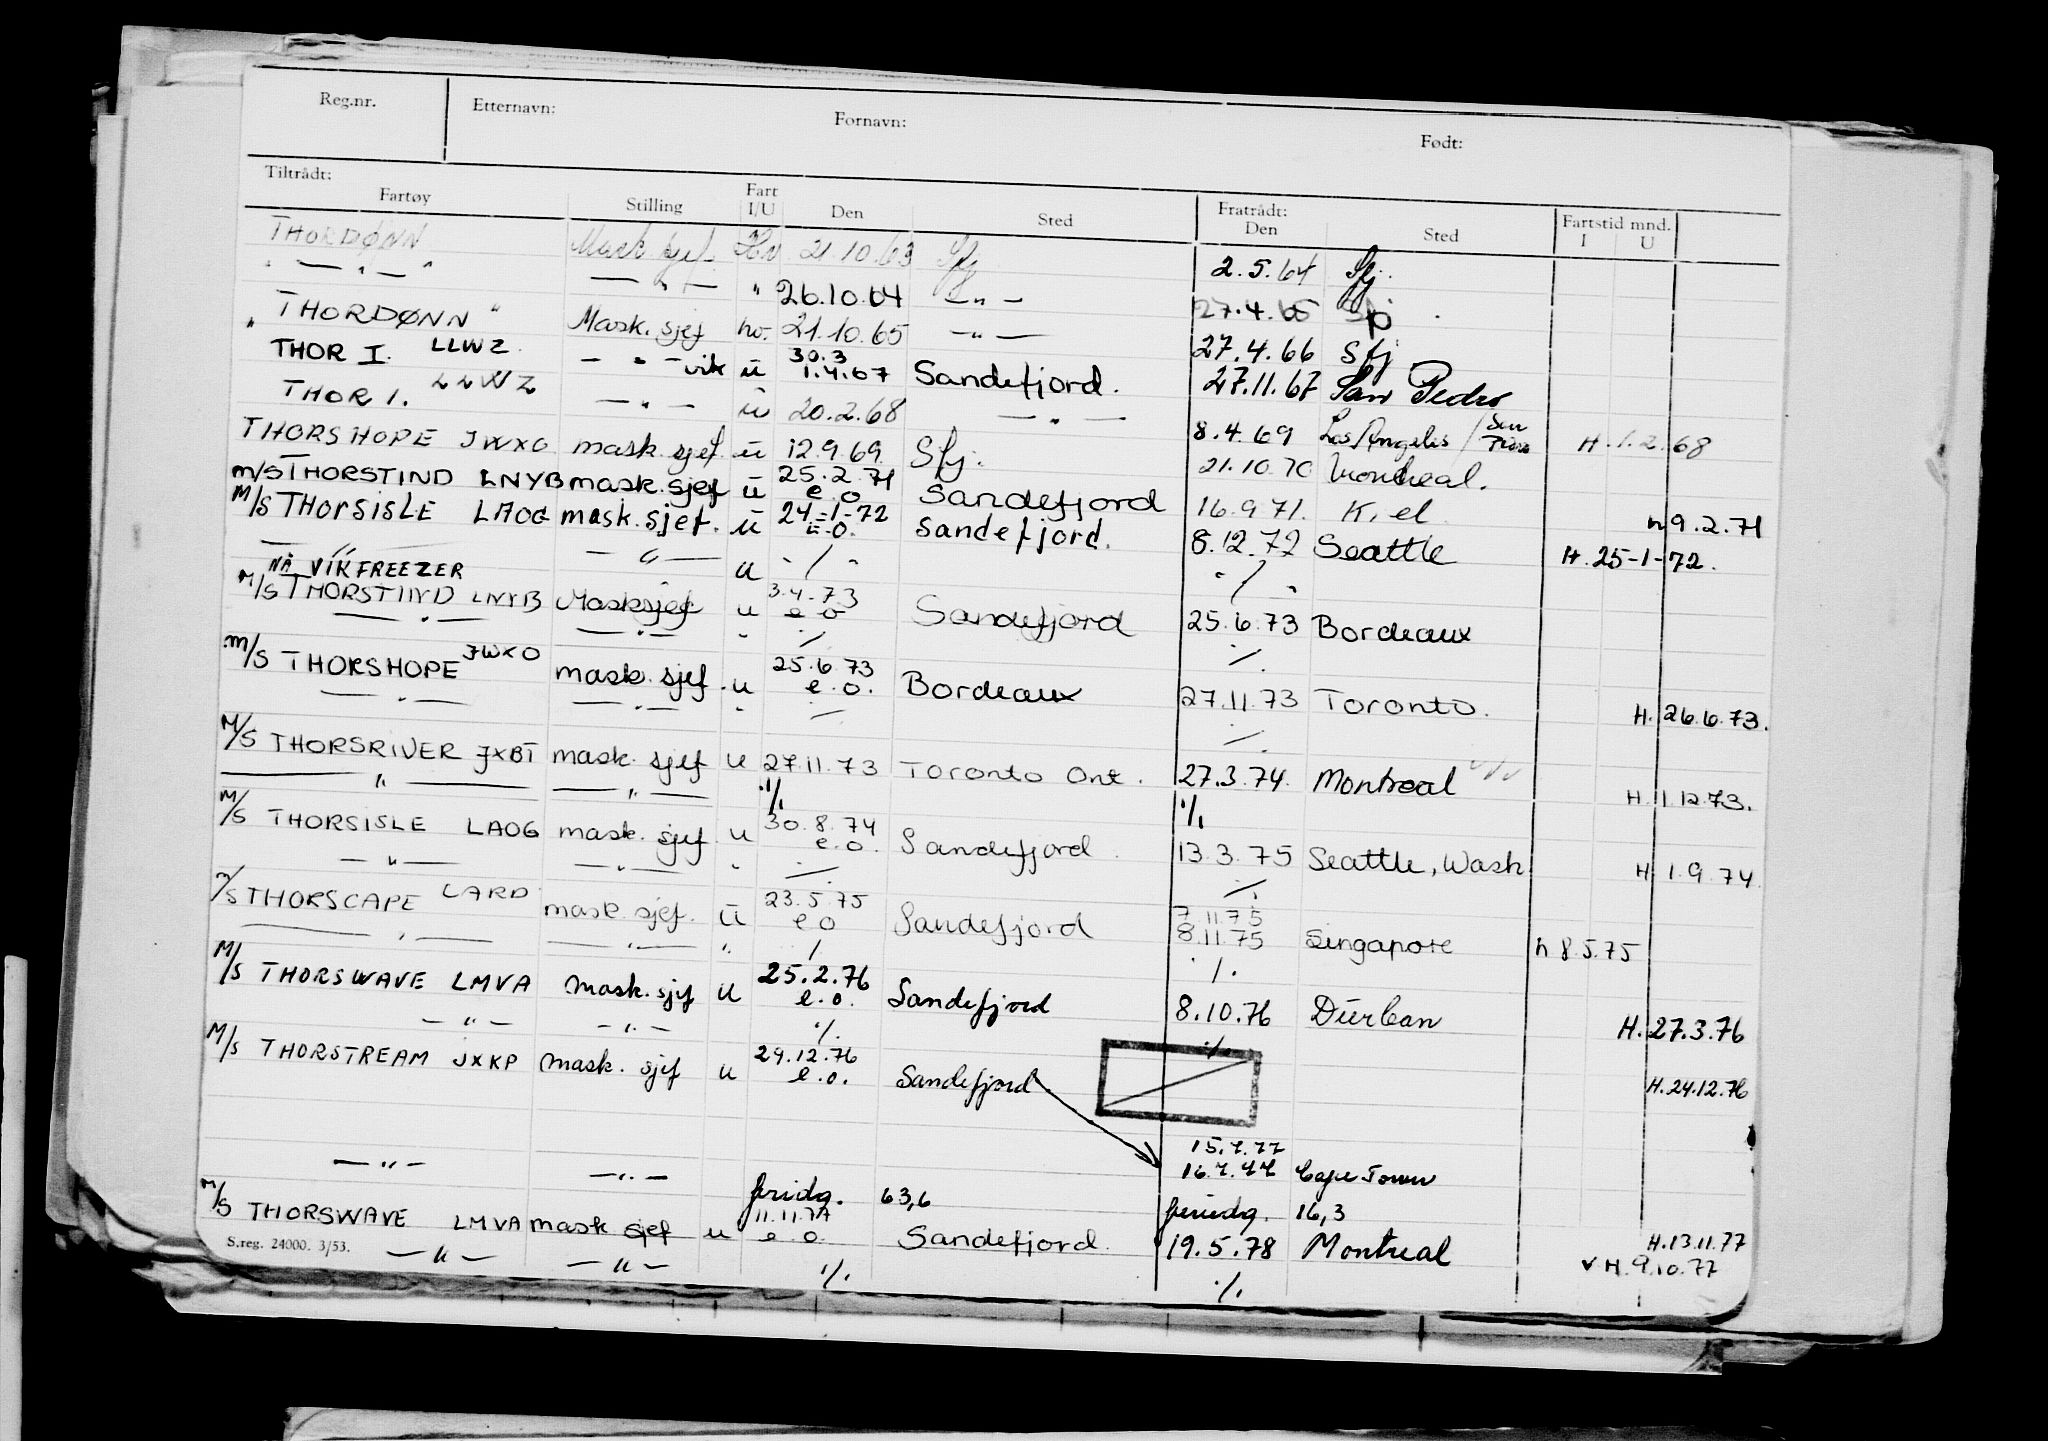 Reg.nr. Etternavn: Fornavn: Født:
Tiltrådt: Fratrådt: Fartstid mnd.
Fartøy Stilling Fart I/U Den Sted Den Sted I U
THORDØNN Mask sjef Hv 21.10.63 Sfj 2.5.64 Sfj.
" — " — " — " — " 26.10.64 — " — 27.4.65
" THORDØNN " Mask. sjef hv. 21.10.65 — " — 27.4.66 Sfj
THOR I. LLWZ — " — vik u 30.3 1.4.67 Sandefjord. 27.11.67 San Pedro
THOR I. LLWZ — " — u 20.2.68 — " — 8.4.69 Los Angeles / San Pedro H. 1.2.68
THORSHOPE JWXO mask. sjef. u 12.9.69. Sfj. 21.10.70 Montreal.
M/S THORSTIND LNYB mask. sjef u 25.2.71 e.o Sandefjord 16.9.71. Kiel h 9.2.71
M/S THORSISLE LAOG mask. sjef. u 24-1-72 e.o. Sandefjord. 8.12.72 Seattle H. 25-1-72.
— " — — " — u ./. ./.
NÅ VIKFREEZER
M/S THORSTIND LNYB Masksjef u 3.4.73 e o Sandefjord 25.6.73 Bordeaux
— " — — " — " ./. ./.
M/S THORSHOPE JWXO mask. sjef. u 25.6.73 e.o. Bordeaux 27.11.73 Toronto. H. 26.6.73.
— " — — " — " ./. ./.
M/S THORSRIVER JXBT mask. sjef u 27.11.73 Toronto Ont. 27.3.74. Montreal H. 1.12.73.
— " — — " — ./. ./.
M/S THORSISLE LAOG mask. sjef u 30.8.74 e.o. Sandefjord 13.3.75 Seattle, Wash H. 1.9.74.
— " — — " — " ./. ./.
M/S THORSCAPE LARD mask. sjef. u 23.5.75 e o Sandefjord 7.11.75 8.11.75 Singapore h 8.5.75
— " — — " — " ./. ./.
M/S THORSWAVE LMVA Mask. sjef u 25.2.76 e.o. Sandefjord 8.10.76 Durban H. 27.3.76
— " — — " — ./. ./.
M/S THORSTREAM JXKP Mask. sjef u 29.12.76 e.o. Sandefjord H. 24.12.76
15.7.77
— " — — " — 16.7.77 Cape Town
feridg. 63,6 feriedg. 16,3
M/S THORSWAVE LMVA mask sjef u 11.11.77 e.o. Sandefjord. 19.5.78 Montreal H. 13.11.77
S.reg. 24000. 3/53. — " — — " — ./. ./. v H. 9.10.77